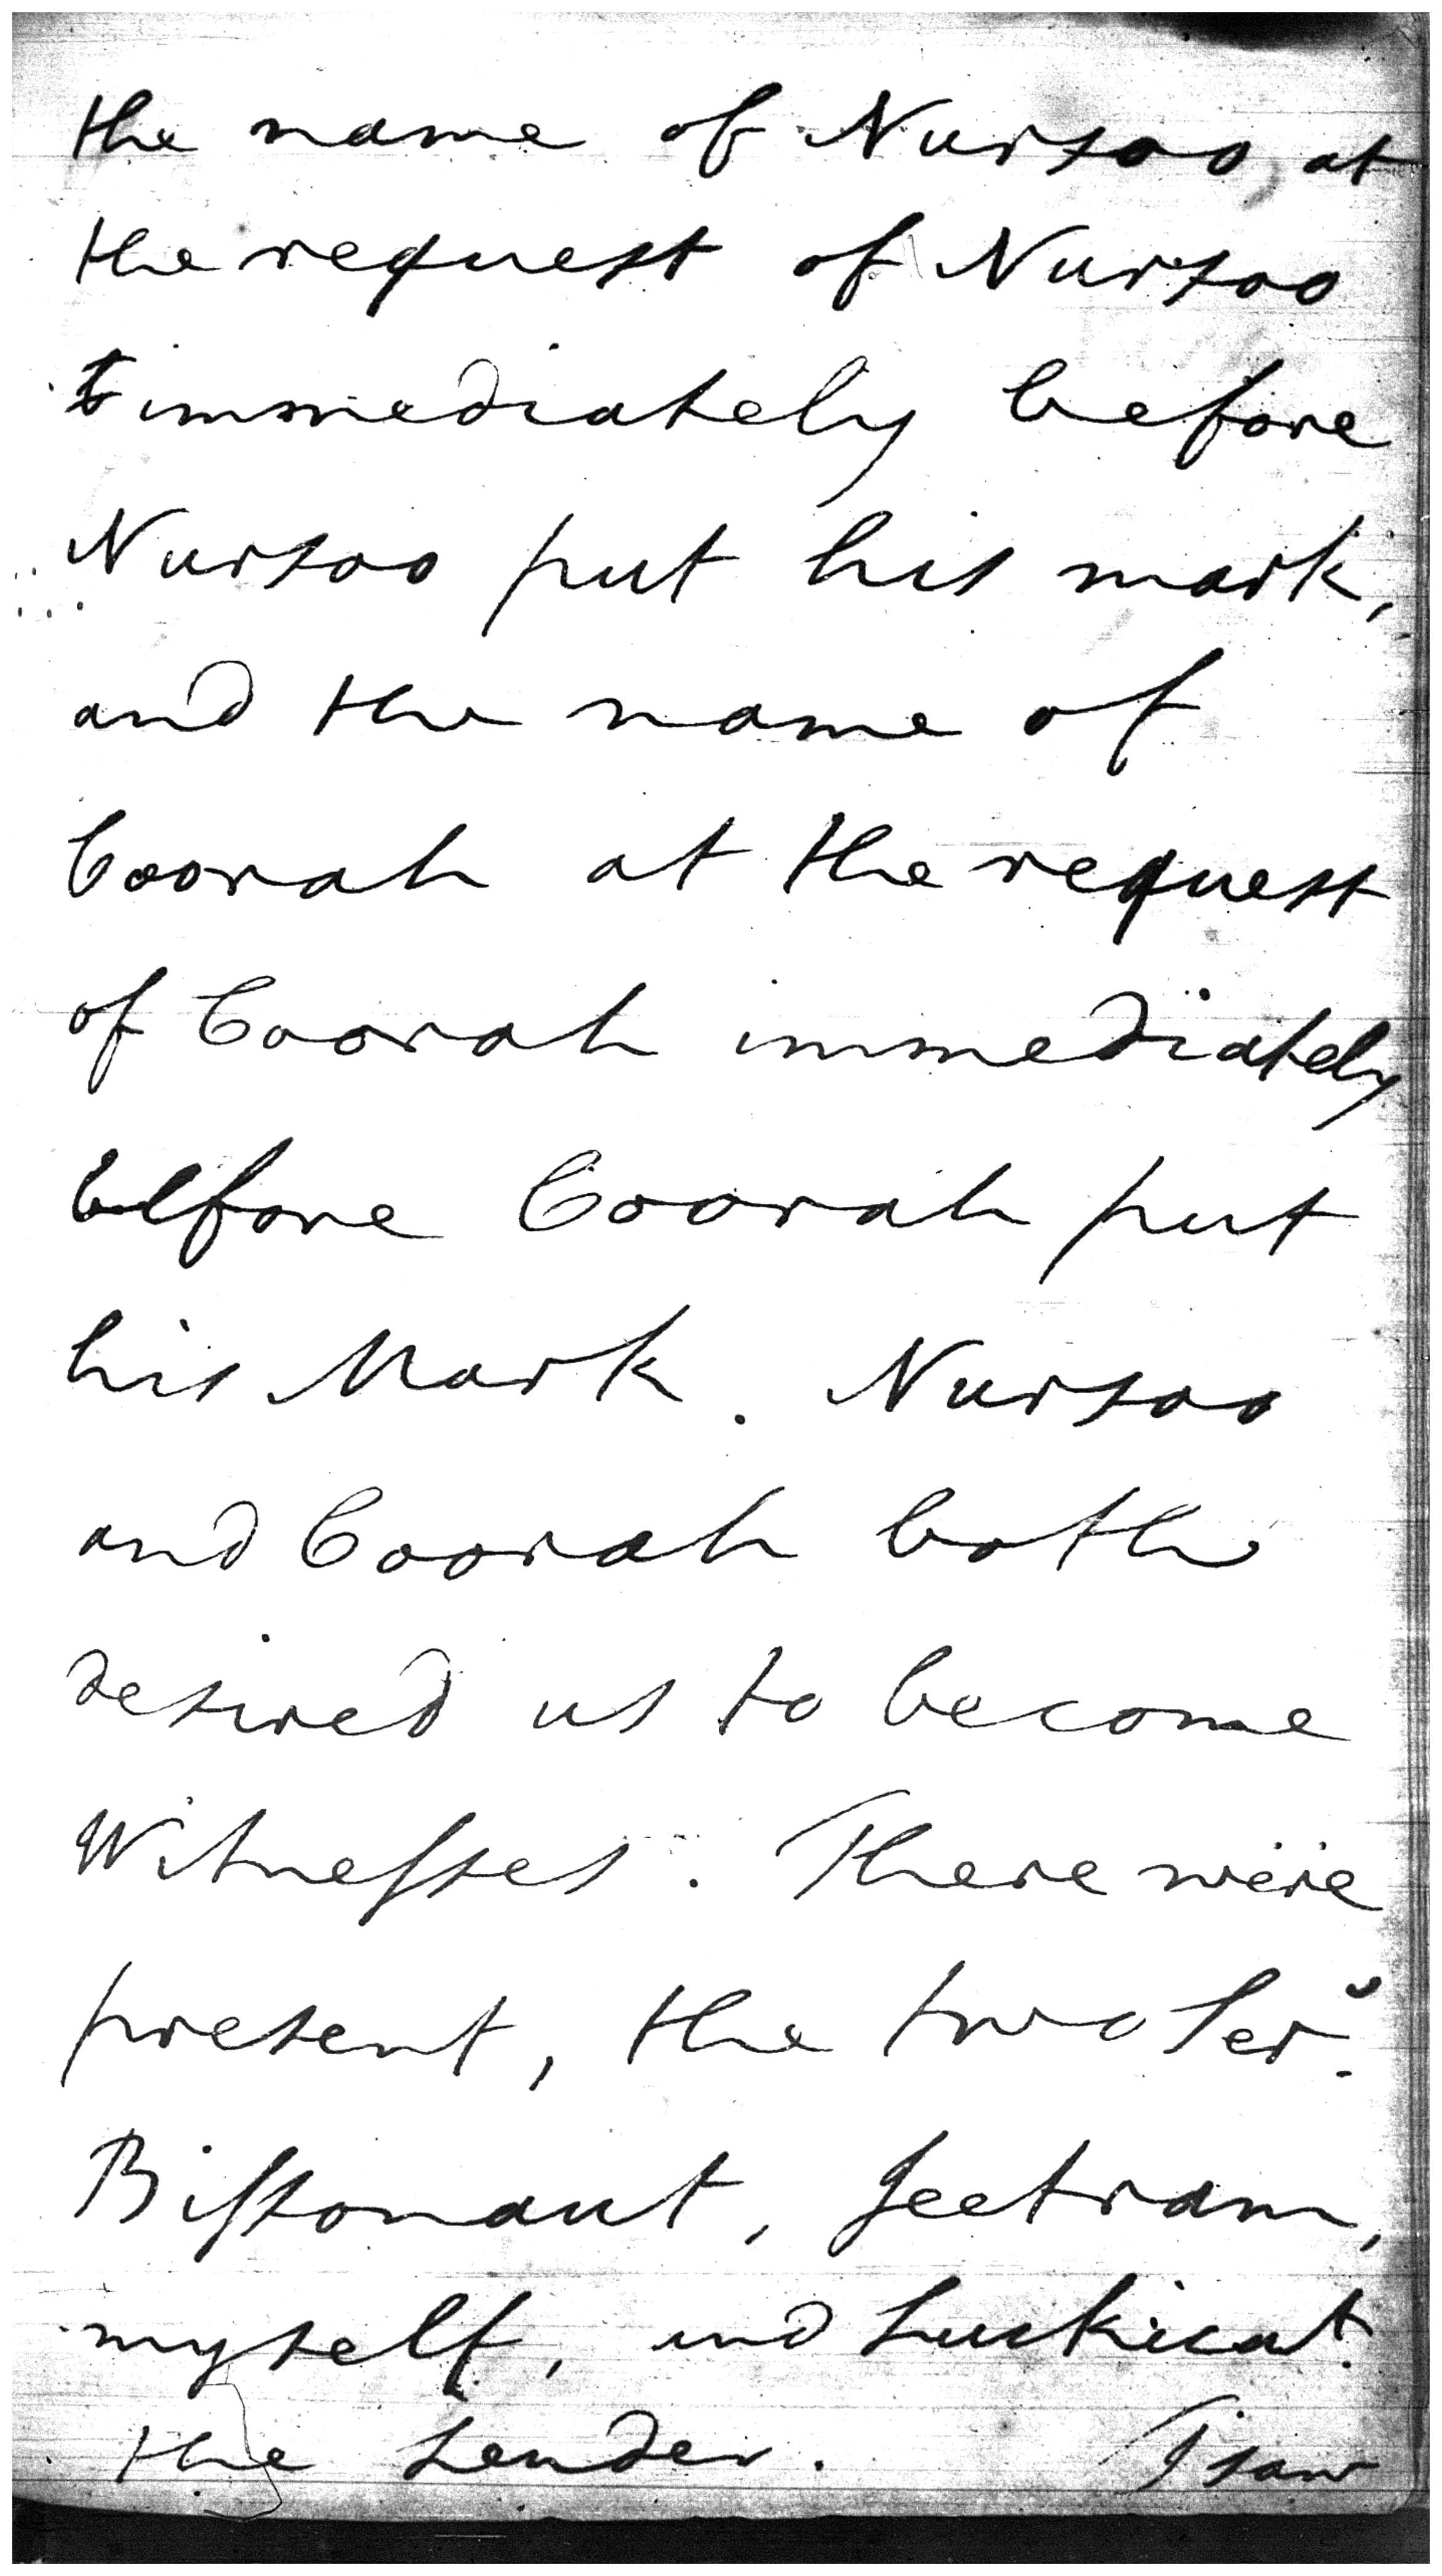 the name of Nursoo, at
the request of Nursoo
immediately before
Nursoo put his mark,
and the name of
Coorah at the request
of Coorah immediately
before Coorah put
his Mark. Nursoo
and Coorah both
desired us to become
Witnesses. There were
present, the two
Bissonaut, Jeetram,
myself, and Luckicat
the Lender. I saw